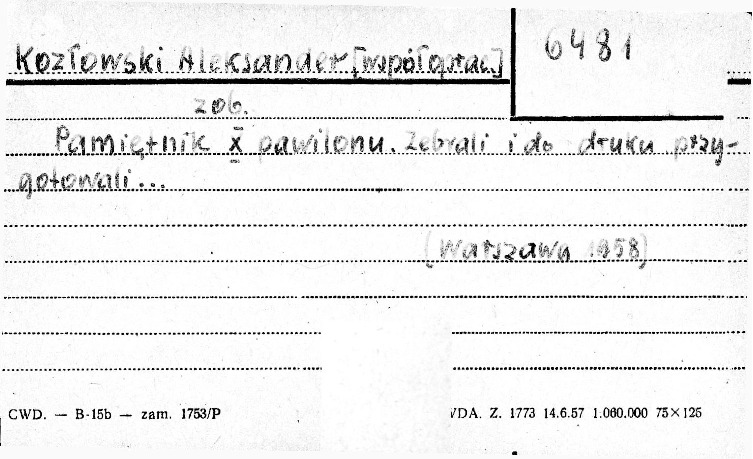 Kozłowski Aleksander [współoprac]
6481
zob.
Pamiętnik X pawilonu. Zebrali i do druku przy-
gotowali...
(Warszawa 1958)
CWD. — B-15b — zam. 1753/P
VDA. Z. 1773 14.6.57 1.060.000 75×125